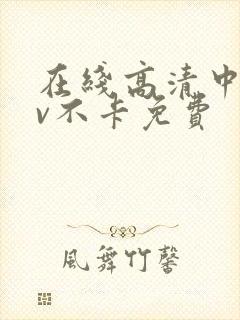 在线高清中
v不卡免費
風舞竹馨